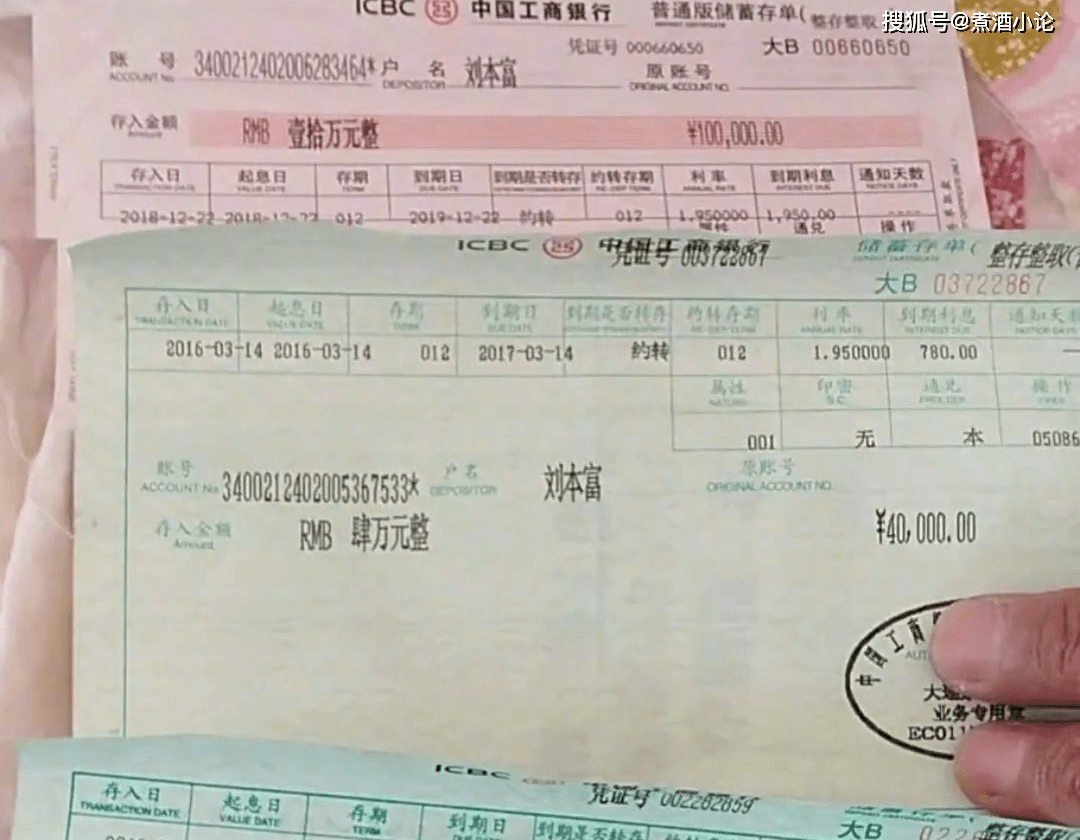 搜狐号@煮酒小论
ICBC 中国工商银行 普通版储蓄存单( 整存整取
凭证号 000660650 大B 00660650
账号 3400212402006283464* 户名 刘本富 原账号
ACCOUNT No. DEPOSITOR ORIGINAL ACCOUNT NO.
存入金额 RMB 壹拾万元整 ¥100,000.00
Amount
存入日 起息日 存期 到期日 到期是否转存 约转存期 利率 到期利息 通知天数
TRANSACTION DATE VALUE DATE TERM DUE DATE RE-DEP TERM ANNUAL RATE INTEREST DUE NOTICE DAYS
2018-12-22 2018-12-22 012 2019-12-22 约转 012 1.950000 1,950.00
属性 通兑 操作
ICBC 中国工商银行 储蓄存单( 整存整取(
凭证号 003722867
大B 03722867
存入日 起息日 存期 到期日 到期是否转存 约转存期 利率 到期利息 通知天数
TRANSACTION DATE VALUE DATE TERM DUE DATE RE-DEP TERM ANNUAL RATE INTEREST DUE NOTICE DAYS
2016-03-14 2016-03-14 012 2017-03-14 约转 012 1.950000 780.00
属性 印密 通兑 操作
001 无 本 05086
账号 3400212402005367533* 户名 刘本富 原账号
ACCOUNT No. DEPOSITOR ORIGINAL ACCOUNT NO.
存入金额 RMB 肆万元整 ¥40,000.00
Amount
中国工商
业务专用章
ICBC
凭证号 002282859
大B
整存整取
存入日 起息日 存期 到期日 到期是否转存
TRANSACTION DATE VALUE DATE TERM